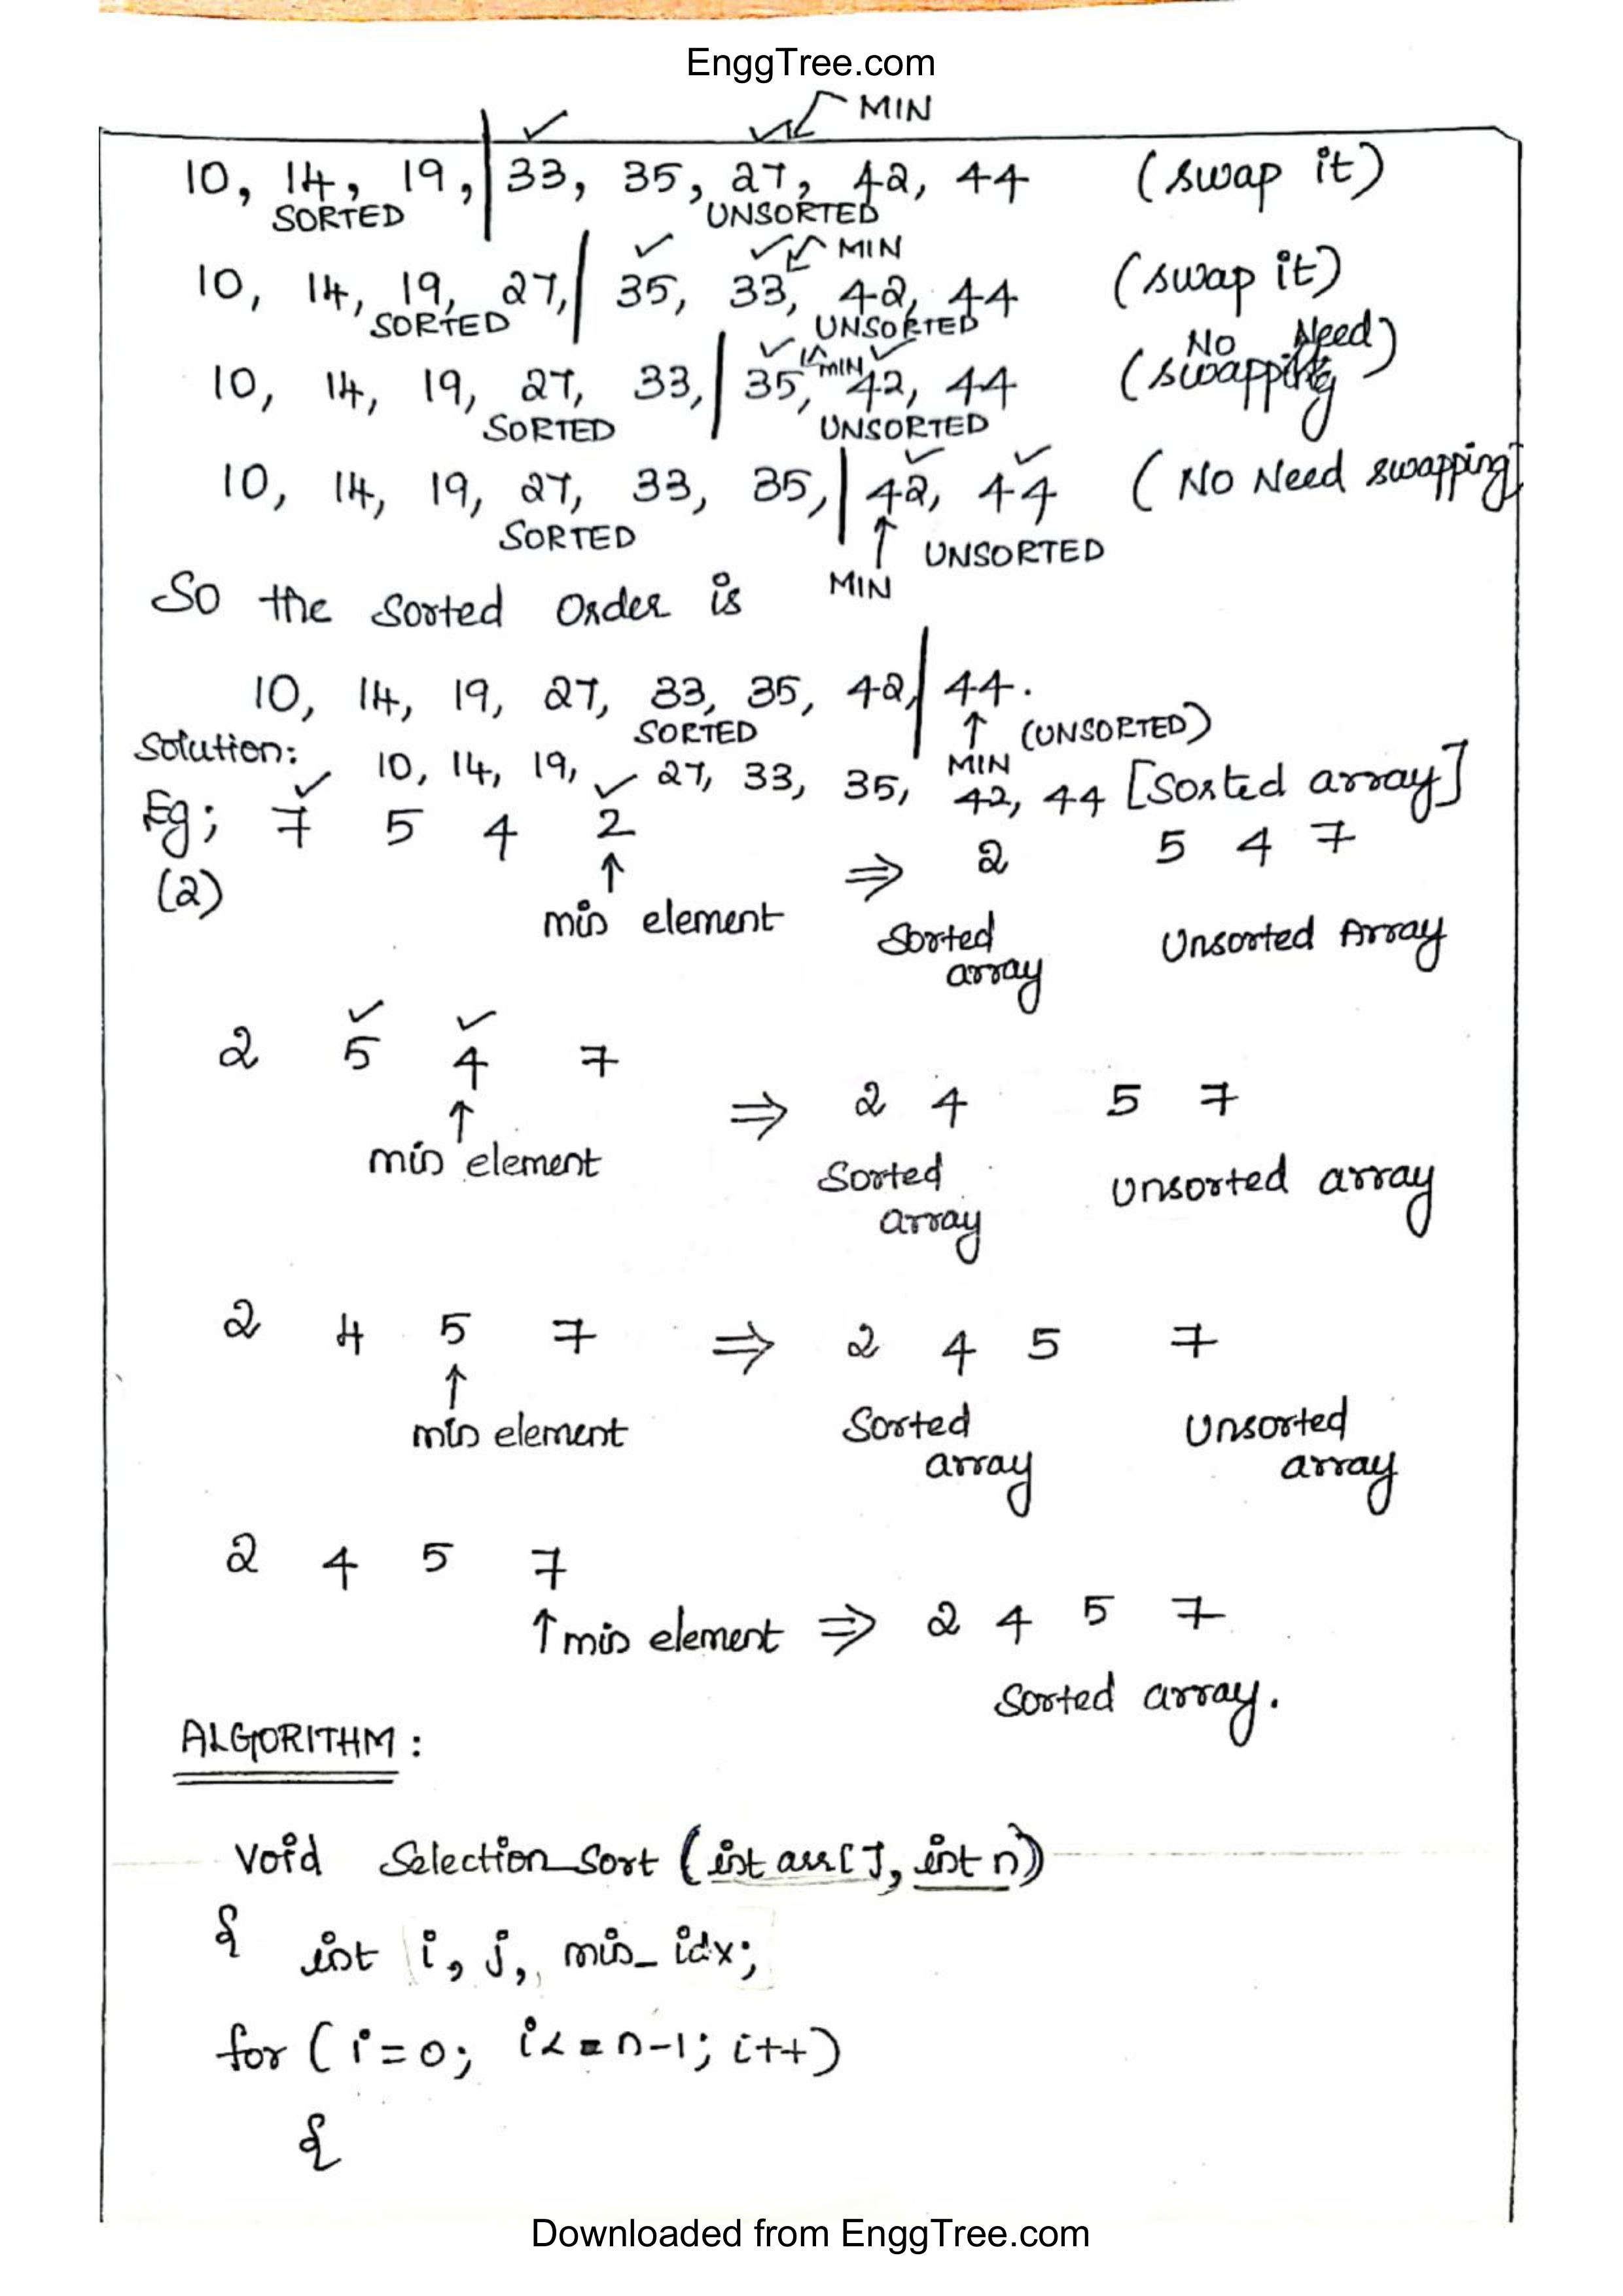 EnggTree.com
MIN
10, 14, 19, | 33, 35, 27, 42, 44 (swap it)
SORTED UNSORTED
MIN
10, 14, 19, 27, | 35, 33, 42, 44 (swap it)
SORTED UNSORTED
No Need
10, 14, 19, 27, 33, | 35, MIN 42, 44 (swapping)
SORTED UNSORTED
10, 14, 19, 27, 33, 35, | 42, 44 (No Need swapping)
SORTED ↑ UNSORTED
MIN
So the Sorted Order is
10, 14, 19, 27, 33, 35, 42, | 44.
SORTED ↑ (UNSORTED)
MIN
Solution: 10, 14, 19, 27, 33, 35, 42, 44 [Sorted array]
Eg; 7 5 4 2 ⇒ 2 5 4 7
(2) ↑
min element Sorted array Unsorted Array
2 5 4 7 ⇒ 2 4 5 7
↑
min element Sorted array Unsorted array
2 4 5 7 ⇒ 2 4 5 7
↑
min element Sorted array Unsorted array
2 4 5 7
↑ min element ⇒ 2 4 5 7
Sorted array.
ALGORITHM:
Void Selection_Sort (int arr[], int n)
{ int i, j, min_idx;
for (i=0; i<=n-1; i++)
{
Downloaded from EnggTree.com